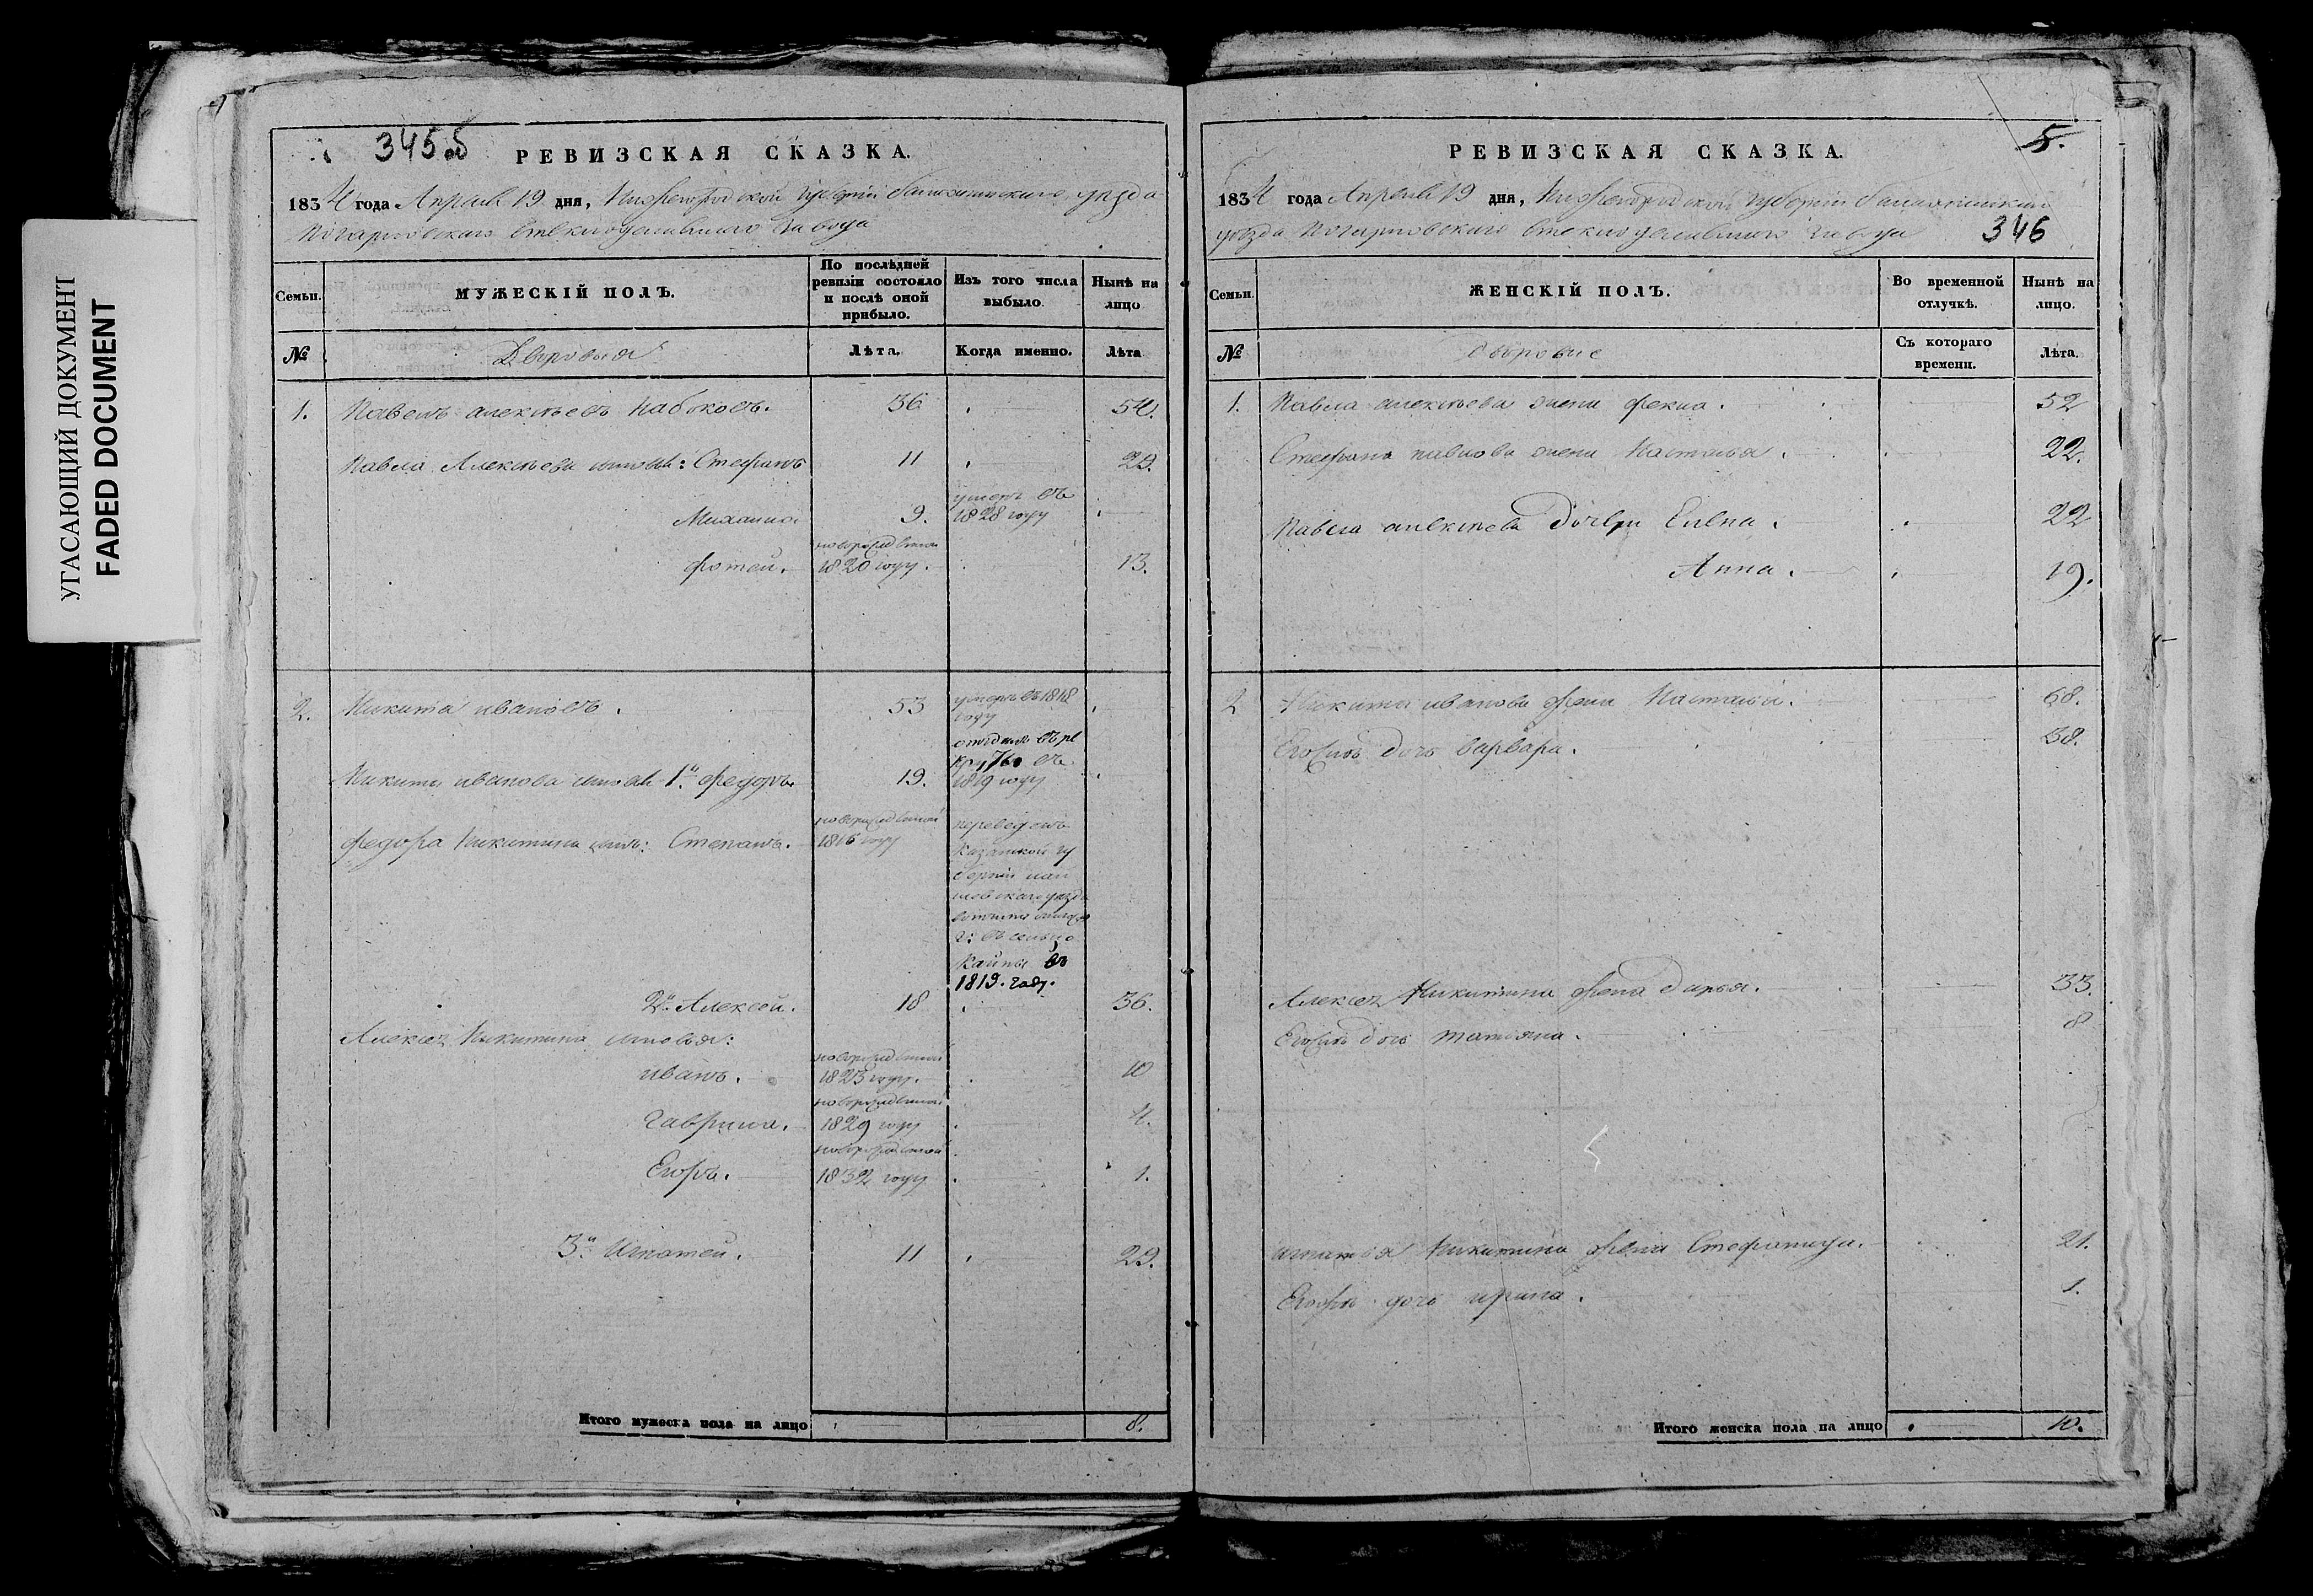 УГАСАЮЩИЙ ДОКУМЕНТ
FADED DOCUMENT
345об
РЕВИЗСКАЯ СКАЗКА.
1834 года Апреля 19 дня, Нижегородской губернiи балахнинского уезда
стеклоделательного завода
Семьи.
МУЖЕСКIЙ ПОЛЪ.
По послѣдней ревизiи состояло и послѣ оной прибыло.
Изъ того числа выбыло.
Нынѣ на лицо
№
Дворовыя
Лѣта.
Когда именно.
Лѣта
1. Павелъ алексѣевъ Набоковъ. 36 54.
Павла Алексѣева сыновья: Стефанъ 11 29.
Михаила 9. умеръ въ 1828 году
фотей. новорожденной 1820 году. 13.
2. Никита ивановъ. 53 умеръ въ 1818 году
Никиты иванова сыновья 1й федоръ 19. отданъ въ рекруты въ 1819 году
федора Никитина сынъ: Степанъ. новорожденной 1816 году
переведенъ
Казанской гу
бернiи
уезда
Каймы въ
1819. году.
2й Алексей. 18 36.
Алексея Никитина сыновья:
иванъ. новорожденной 1823 году. 10
гаврила. новорожденной 1829 году 4.
Егоръ. новорожденной 1832 году 1.
3й Игнатей. 11 29.
Итого мужеска пола на лицо 8.
5.
РЕВИЗСКАЯ СКАЗКА.
1834 года Апреля 19 дня, Нижегородской губернiи балахнинского
уезда стеклоделательного завода 346
Семьи.
ЖЕНСКIЙ ПОЛЪ.
Во временной отлучкѣ.
Нынѣ на лицо.
№
дворовые
Съ котораго времени.
Лѣта.
1. Павла алексѣева жена фекла. 52
Стефана павлова жена Насталья. 22.
Павла алексѣева дочери Елена. 22
Анна. 19.
2 Никиты иванова жена Насталья. 68.
Егожъ дочь варвара. 38.
Алексея Никитина жена дарья. 33.
Егожъ дочь татьяна. 8
игнатья Никитина жена Стефанида. 21.
Егожъ дочь ирина. 1.
Итого женска пола на лицо 10.